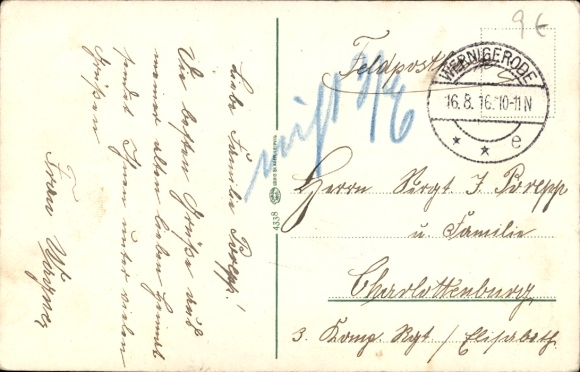 Liebe Familie Poepp!
Die besten Grüße aus
meiner alten lieben Heimat
sendet Ihnen unter vielen
Grüßen
Frau Wagner
9 €
Feldpost
WERNIGERODE
16.8.16.10-11N
* * e
4338
Herrn Sergt J. Poepp
u. Familie
Charlottenburg
3. Komp. Rgt / Elisabeth.